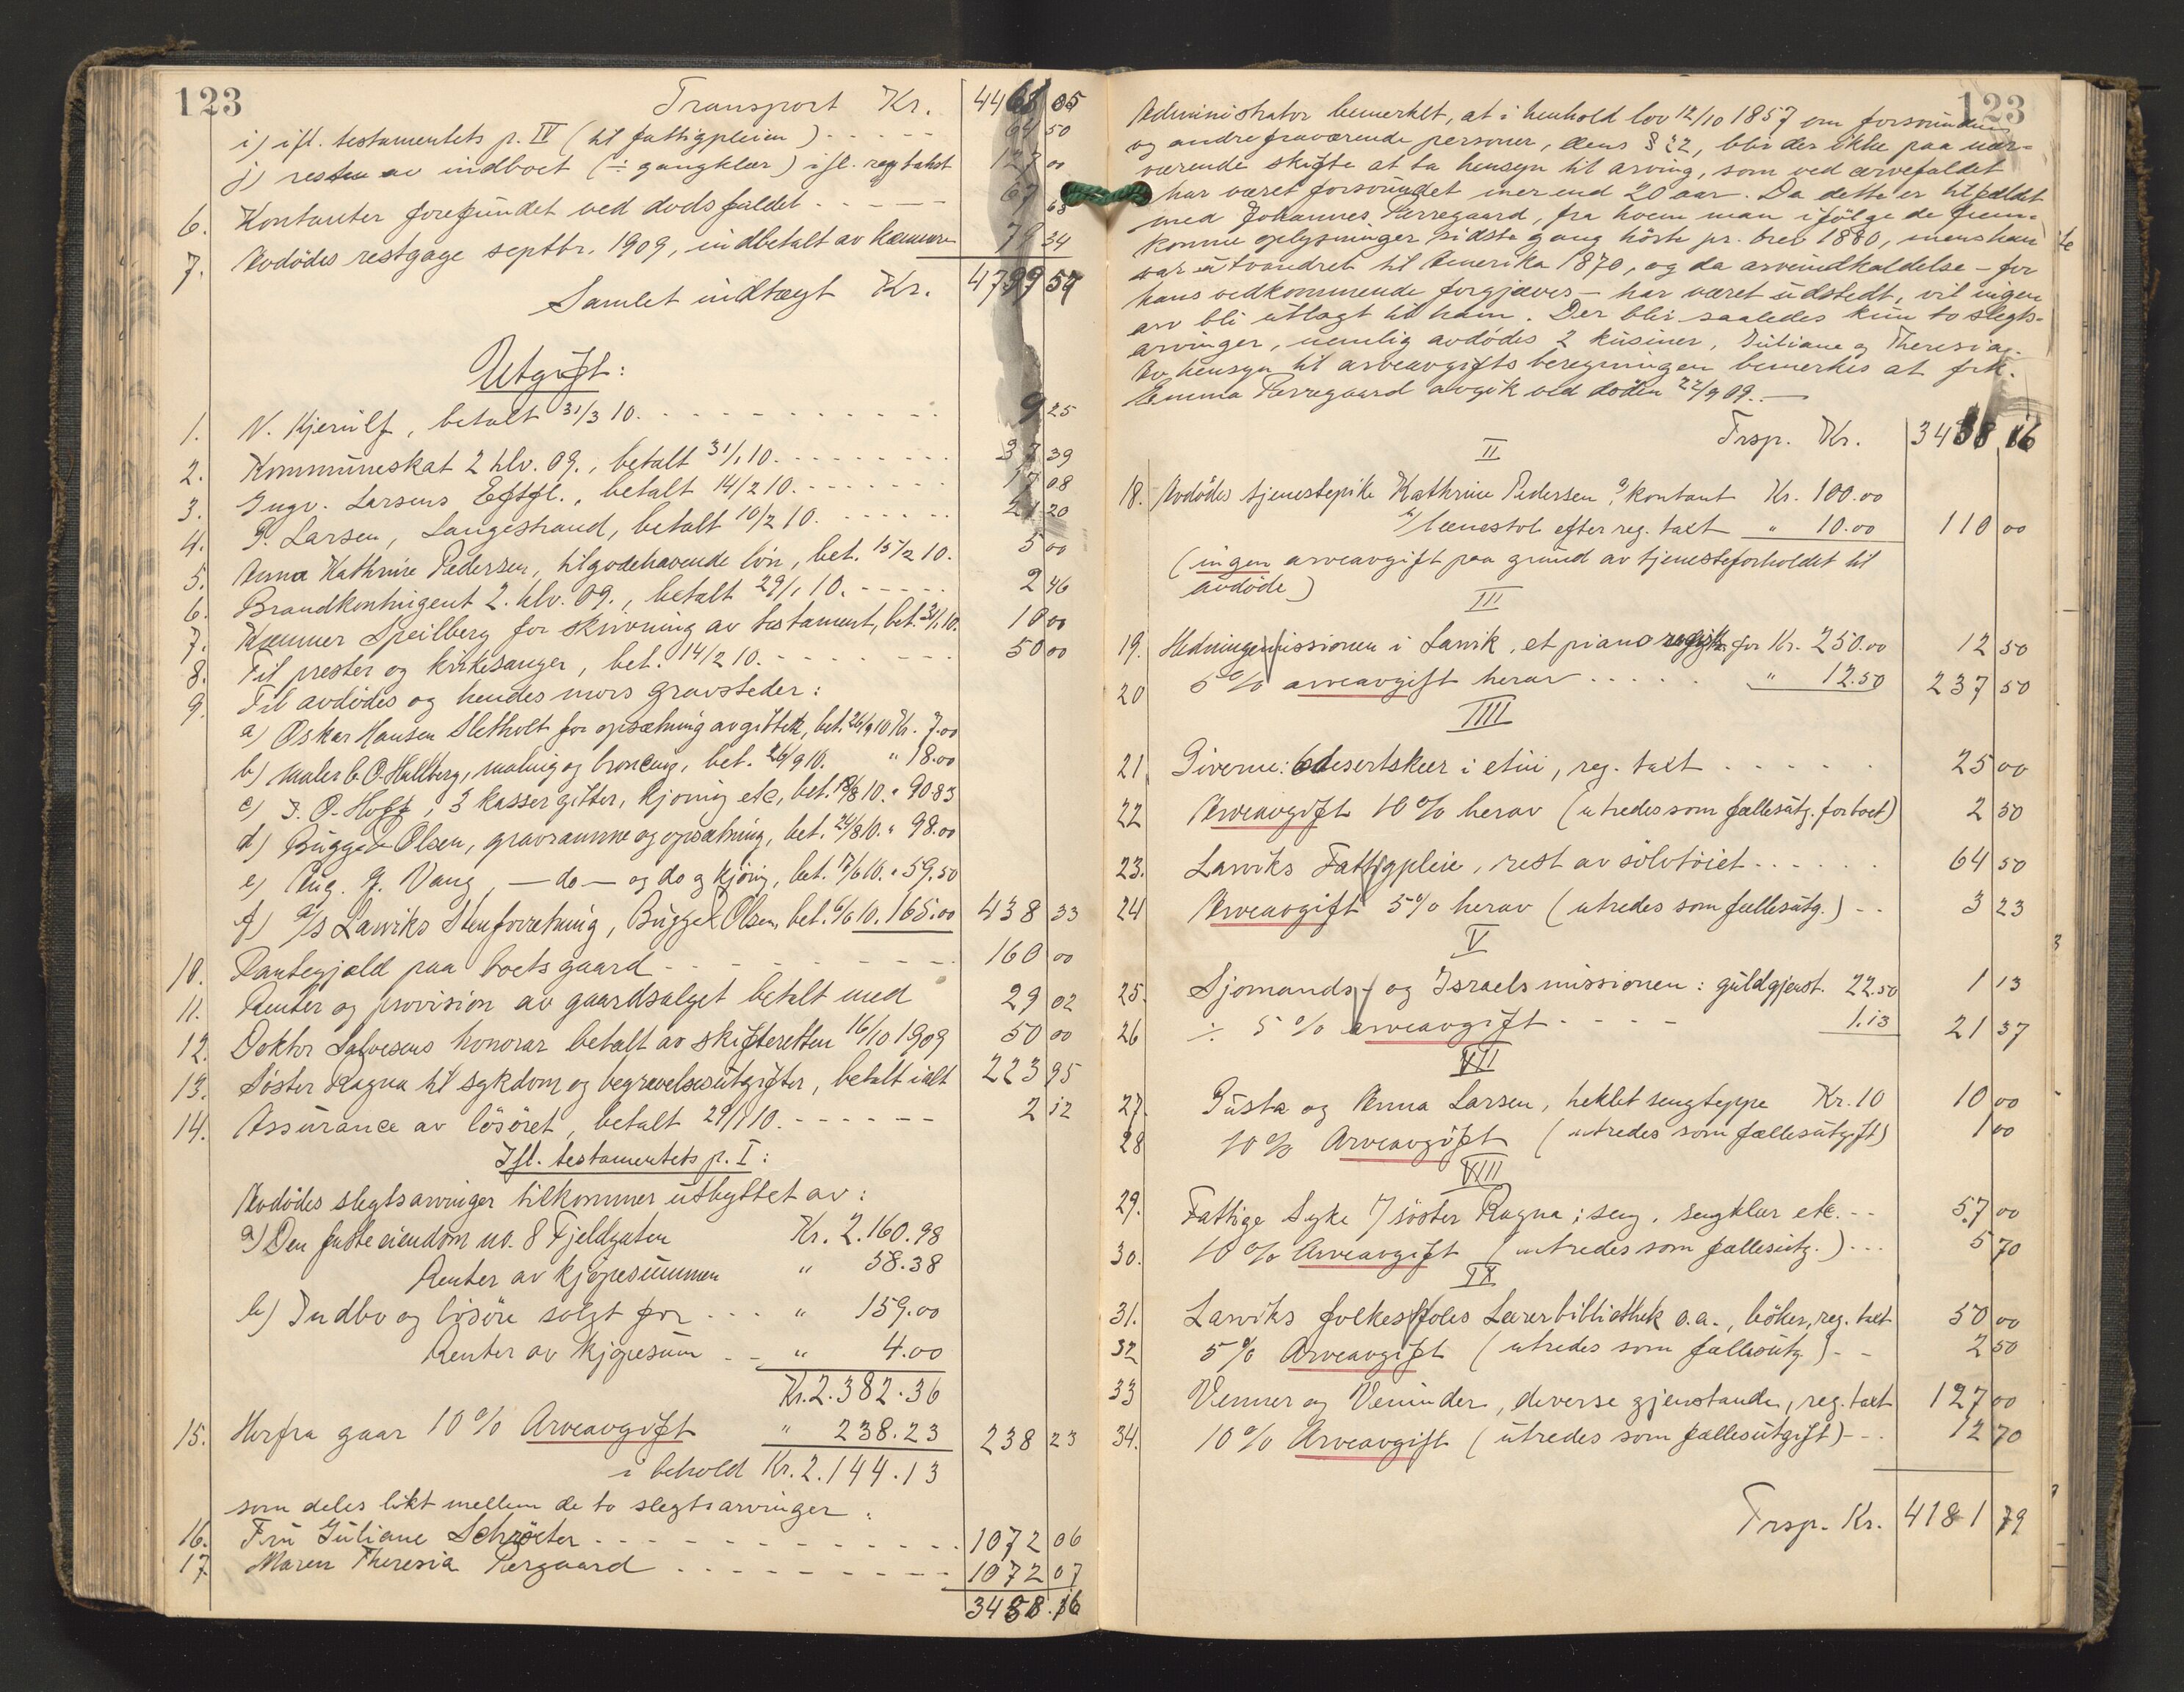 123
Transport Kr. 4468 05
i) ifl. testamentets p. IV (til fattigpleien) - - - - 64 50
j) resten av indboet (÷ gangklær) ifl. reg. takst 127 00
6. Kontanter forefundet ved dødsfaldet - - - - - 67 68
7. Avdødes restgage septbr. 1909, indbetalt av kæmner 79 34
Samlet indtægt Kr. 4799 57
Utgift:
1. N. Kjerulf, betalt 31/3 10. - - - - - - - - - - 9 25
2. Kommuneskat 2 hlv. 09., betalt 31/1 10. - - - - - - - 37 39
3. Ingv. Larsens Eftfl., betalt 14/2 10. - - - - - - - 17 08
4. P. Larsen, Langestrand, betalt 10/2 10. - - - - - - 21 20
5. Anna Kathrine Pedersen, tilgodehavende løn, bet. 15/2 10. 5 00
6. Brandkontingent 2. hlv. 09., betalt 29/1 10. - - - - - 2 46
7. Kæmner Speilberg for skrivning av testament, bet. 31/1 10. 10 00
8. Til prester og kirkesanger, bet. 14/2 10. - - - - - - 50 00
9. Til avdødes og hendes mors gravsteder:
a) Oskar Hansen Sletholt for opsætning av gitter, bet. 26/9 10 Kr. 7.00
b) Maler C. O. Hallberg, maling og broncing, bet. 26/9 10. " 18.00
c) I. O. Hoff, 3 kasser gitter, kjøring etc, bet. 18/8 10. " 90.83
d) Bugge & Olsen, gravramme og opsætning, bet. 24/8 10. " 98.00
e) Aug. J. Vang, — do — og do g kjøring, bet. 17/6 10. " 59.50
f) A/S Larviks Stenforretning, Bugge & Olsen, bet. 6/6 10. 165.00 438 33
10. Pantegjæld paa boets gaard - - - - - - - - - - 160 00
11. Renter og provision av gaardsalget betalt med 29 02
12. Doktor Salvesens honorar betalt av skifteretten 16/10 1909 50 00
13. Søster Ragna til sykdom og begravelsesutgifter, betalt ialt 223 95
14. Assurance av løsøret, betalt 29/1 10. - - - - - - 2 12
Ifl. testamentets p. I:
Avdødes slegtsarvinger tilkommer utbyttet av:
a) Den faste eiendom no. 8 Fjeldgaten Kr. 2.160.98
Renter av kjøpesummen " 58.38
b) Indbo og løsøre solgt for - - - " 159.00
Renter av kjøpesum - - " 4.00
Kr. 2.382.36
15. Herfra gaar 10 % Arveavgift " 238.23 238 23
i behold Kr. 2.144.13
som deles likt mellem de to slegtsarvinger:
16. Fru Juliane Schrøeter - - - - - - - - - - - - 1072 06
17. Maren Theresia Pergaard - - - - - - - - - 1072 07
3438.16
123
Administrator bemerket, at i henhold lov 12/10 1857 om forsvundne
og andre fraværende personer, dens § 22, blir der ikke paa nær-
værende skifte at ta hensyn til arving, som ved arvefaldet
har været forsvundet mer end 20 aar. Da dette er tilfældet
med Johannes Perregaard, fra hvem man ifølge de frem-
komne oplysninger sidste gang hørte pr. brev 1880, mens han
var utvandret til Amerika 1870, og da arveindkaldelse – for
hans vedkommende forgjæves – har været udstedt, vil ingen
arv bli utlagt til ham. Der blir saaledes kun to slegts-
arvinger, nemlig avdødes 2 kusiner, Juliane og Theresia.
Av hensyn til arveavgifts beregningen bemerkes at frk.
Emma Perregaard avgik ved døden 22/9 09. —
Trsp. Kr. 3438 16
II
18. Avdødes tjenestepike Kathrine Pedersen, a/ kontant Kr. 100.00
b/ lænestol efter reg. taxt " 10.00 110 00
(ingen arveavgift paa grund av tjenesteforholdet til
avdøde)
III
19. Hedningemissionen i Larvik, et piano for Kr. 250.00 12 50
20 5 % arveavgift herav - - - - - " 12.50 237 50
IIII
21. Giverne: 6 desertskeer i etui, reg. taxt - - - - - - 25 00
22 Arveavgift 10 % herav (utredes som fællesutg. for boet) 2 50
23. Larviks Fattigpleie, rest av sølvtøiet - - - - - - 64 50
24 Arveavgift 5 % herav (utredes som fællesutg.) - - 3 23
V
25. Sjømands- og Israelsmissionen: guldgjenst. 22.50 1 13
26 ÷ 5 % arveavgift - - - - - 1.13 21 37
VII
27. Gusta og Anna Larsen, heklet sengteppe Kr. 10 10 00
28 10 % Arveavgift (utredes som fællesutgift) 1 00
VIII
29. Fattige Syke / søster Ragna: seng, sengklær etc. - - 57 00
30. 10 % Arveavgift (utredes som fællesutg.) - - - 5 70
IX
31. Larviks folkeskoles Lærerbibliothek o.a., bøker, reg. taxt 50 00
32 5 % Arveavgift (utredes som fællesutg.) - - 2 50
33 Venner og Veninder, diverse gjenstande, reg. taxt 127 00
34. 10 % Arveavgift (utredes som fællesutgift) - - 12 70
Trsp. Kr. 4181 79